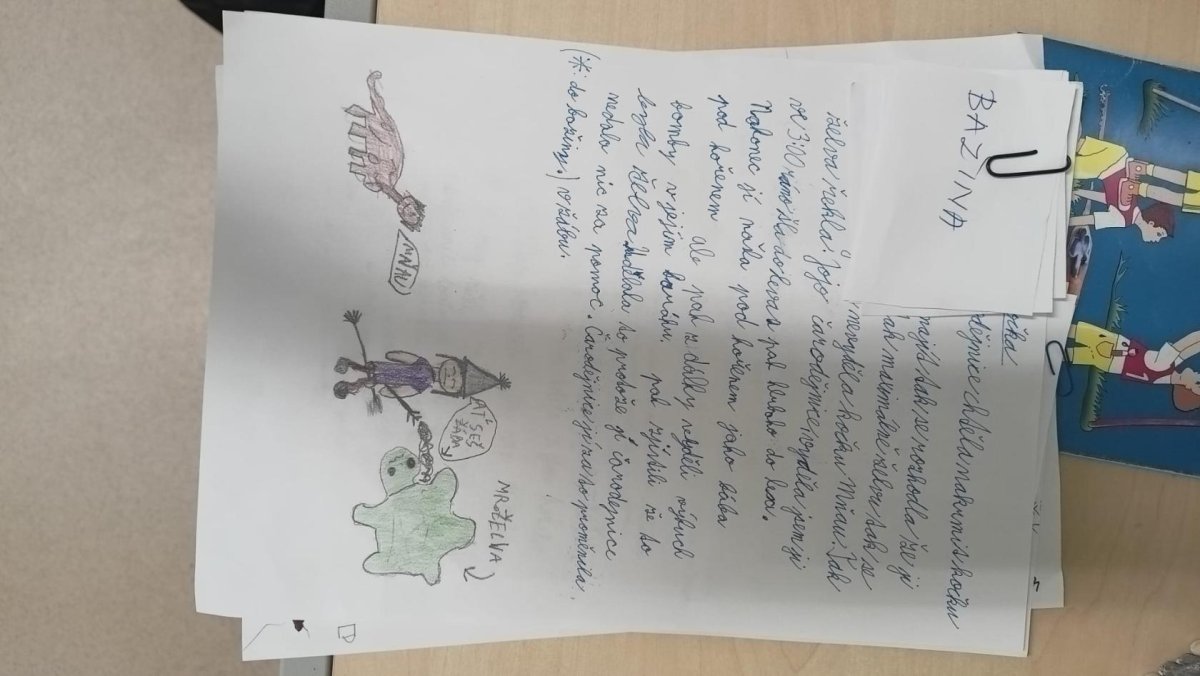 BAŽINA
dějnice chtěla nakrmit kočku
najít tak se rozhodla že ji
ak maximálně želvu tak se
nevyděla kočku Mňau. Tak
želva řekla: Jojo čarodějnice vyděla jsem ji
ve 3:00 ráno šla do leva a pak hluboko do lesa.
Nakonec ji našla pod kořenem jako žába
pod kořenem Ale pak z dálky vyděli výbuch
bomby v jejím baráku, pak zjistili že to
byla želva udělala to protože jí čarodějnice
nedala nic za pomoc. Čarodějnice jí za to proměnila
(*: do bažiny.) v žábu.
MŇAU
AŤ SEŠ
ŽÁBA
MROŽELVA